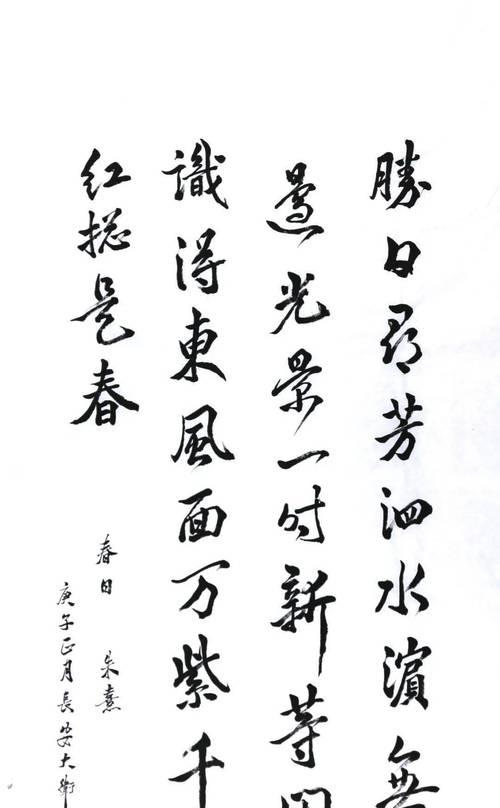 勝日尋芳泗水濵無
邊光景一时新等閒
識得東風面万紫千
红捴是春
春日 朱熹
庚子正月長安大衛